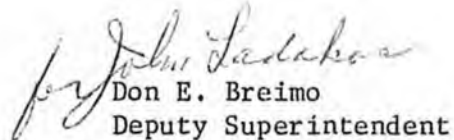 for John Ladakos
Don E. Breimo
Deputy Superintendent